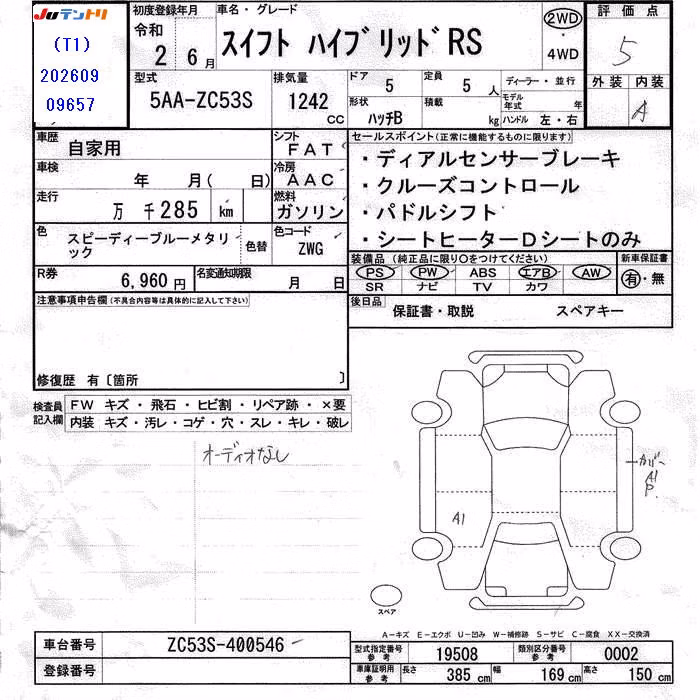 JUテントリ
(T1)
202609
09657
初度登録年月
令和
2 6月
車名・グレード
スイフト ハイブリッド RS
2WD
・
4WD
評価点
5
外装 内装
A
型式
5AA-ZC53S
排気量
1242 cc
ドア
5
定員
5 人
形状
ハッチB
積載
kg
ディーラー・並行
モデル年式 年
ハンドル 左・右
車歴
自家用
シフト
FAT
車検
年 月( 日)
冷房
AAC
走行
万 千285 km
燃料
ガソリン
色
スピーディーブルーメタリック
色替
色コード
ZWG
R券
6,960 円
名変通知期限
月 日
セールスポイント(正常に機能するものに限ります)
・ディアルセンサーブレーキ
・クルーズコントロール
・パドルシフト
・シートヒーターDシートのみ
装備品(純正品に限り○をつけてください)
PS PW ABS エアB AW
SR ナビ TV カワ
新車保証書
有・無
後日品
保証書・取説 スペアキー
注意事項申告欄(不具合内容等は具体的に記入して下さい)
修復歴 有〔箇所 〕
検査員記入欄
FW キズ・飛石・ヒビ割・リペア跡・×要
内装 キズ・汚レ・コゲ・穴・スレ・キレ・破レ
オーディオなし
カバー
A1
P.
A1
スペア
A-キズ E-エクボ U-凹み W-補修跡 S-サビ C-腐食 XX-交換済
車台番号
ZC53S-400546
登録番号
型式指定番号 参考
19508
類別区分番号 参考
0002
車庫証明用 参考
長さ 385 cm
幅 169 cm
高さ 150 cm